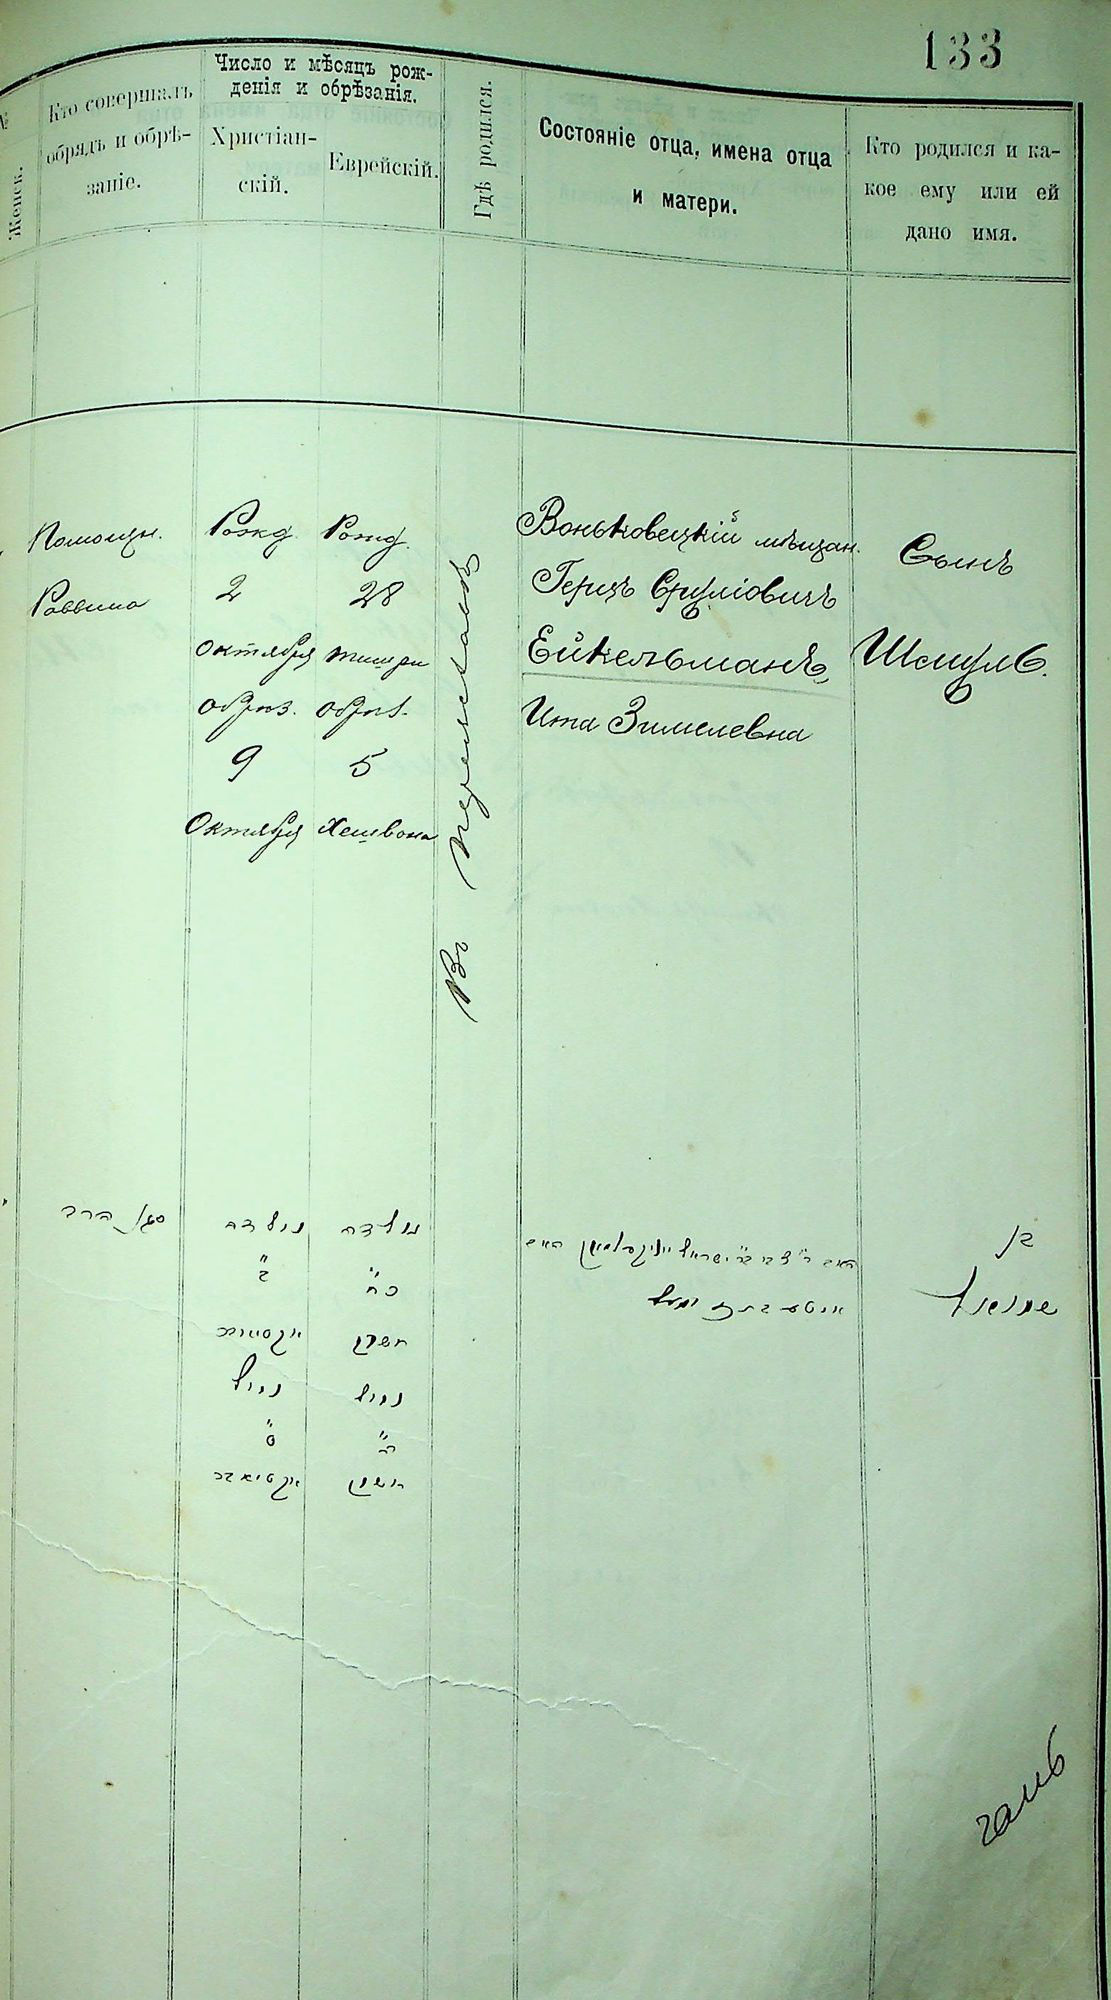 133
Женск.
Кто совершалъ
обрядъ и обрѣ-
заніе.
Число и мѣсяцъ рож-
денія и обрѣзанія.
Христіан-
скій.
Еврейскій.
Гдѣ родился.
Состояніе отца, имена отца
и матери.
Кто родился и ка-
кое ему или ей
дано имя.
Помощн.
Раввина
Рожд.
2
октября
обрѣз.
9
Октября
Рожд.
28
тишри
обрѣз.
5
Хешвона
Въ Переяславѣ
Воньковецкій мѣщан.
Герцъ Сруліовичъ
Ейкельманъ,
Ита Зимелевна
Сынъ
Шмуль.
סגן הרב
נולד
ב"
אקטאבר
נמול
ט"
אקטאבר
נולד
כח"
תשרי
נמול
ה"
חשון
בן
שמואל